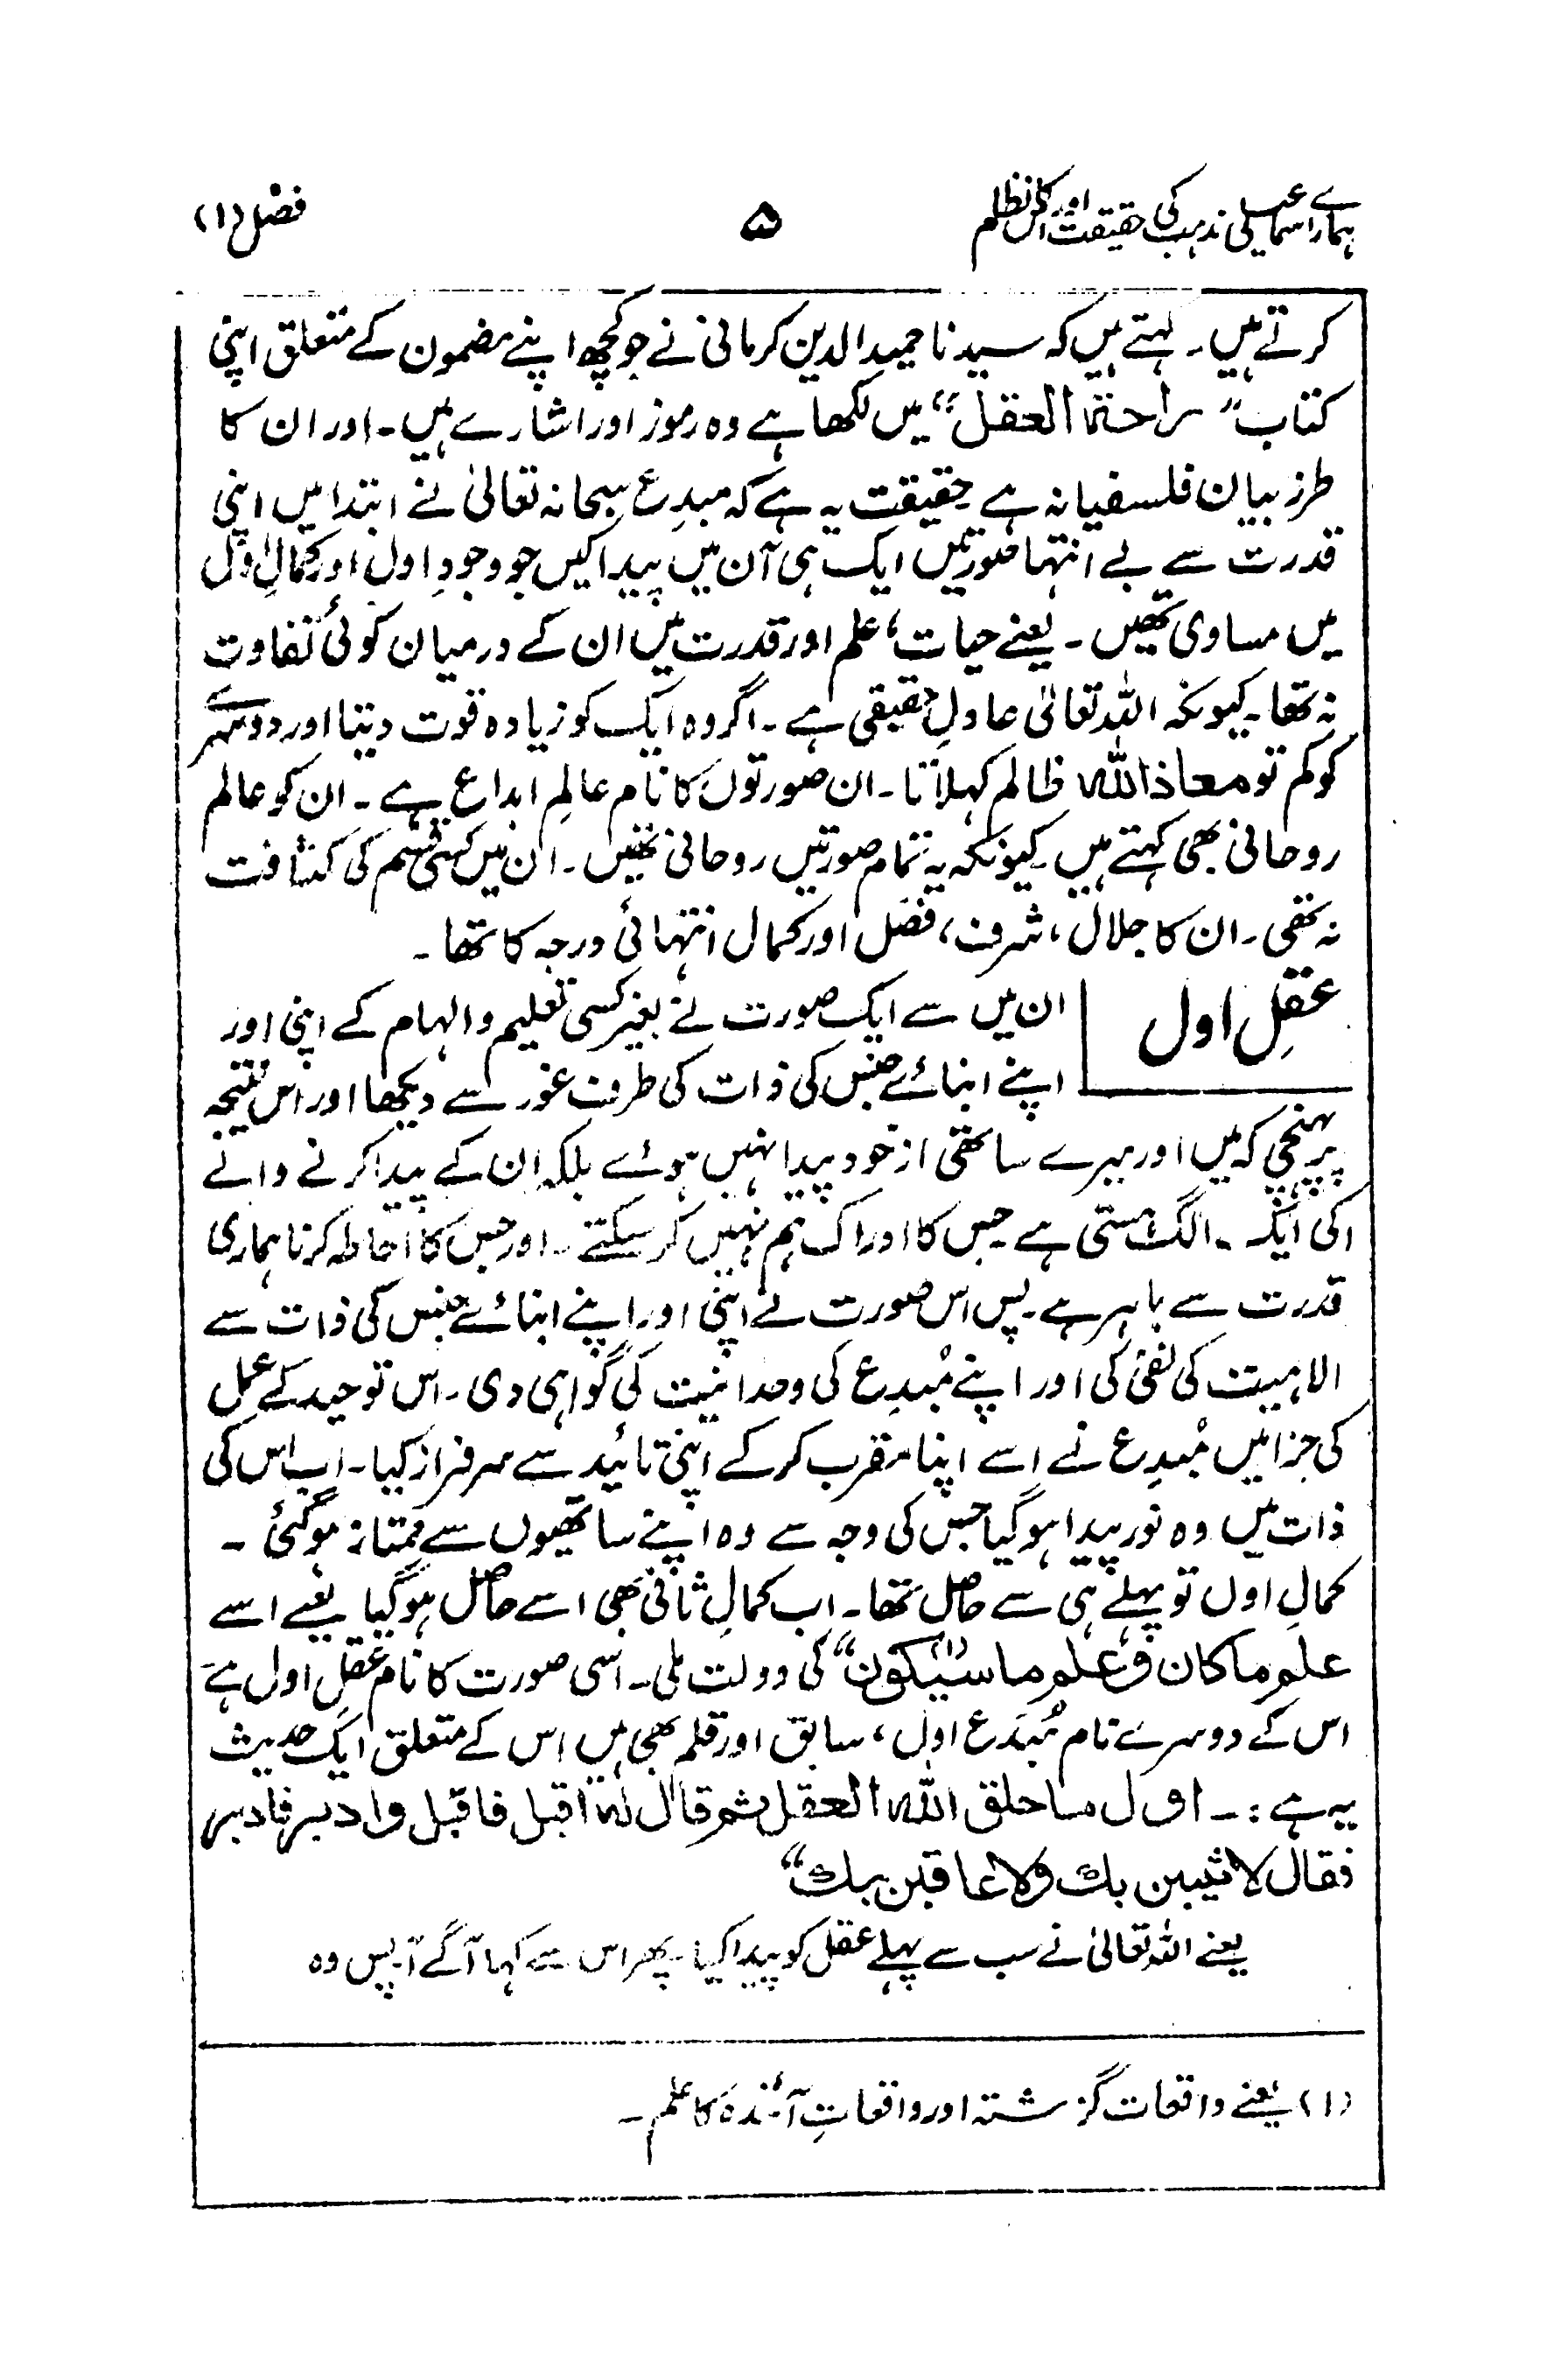 ہمارے اسماعیلی مذہب کی حقیقت اور اس کا نظام
۵
فصل (۱)
کرتے ہیں۔ کہتے ہیں کہ سیدنا حمید الدین کرمانی نے جو کچھ اپنے مضمون کے متعلق اپنی
کتاب ”راحۃ العقل“ میں لکھا ہے وہ رموز اور اشارے ہیں۔ اور ان کا
طرز بیان فلسفیانہ ہے حقیقت یہ ہے کہ مبدِع سبحانہ تعالیٰ نے ابتدا میں اپنی
قدرت سے بے انتہا صورتیں ایک ہی آن میں پیدا کیں جو وجودِ اول اور کمالِ اول
میں مساوی تھیں۔ یعنے حیات، علم اور قدرت میں ان کے درمیان کوئی تفاوت
نہ تھا۔ کیونکہ اللہ تعالیٰ عادلِ حقیقی ہے۔ اگر وہ ایک کو زیادہ قوت دیتا اور دوسرے
کو کم تو معاذ اللہ ظالم کہلاتا۔ ان صورتوں کا نام عالمِ ابداع ہے۔ ان کو عالم
روحانی بھی کہتے ہیں۔ کیونکہ یہ تمام صورتیں روحانی تھیں۔ ان میں کسی قسم کی کثافت
نہ تھی۔ ان کا جلال، شرف، فضل اور کمال انتہائی درجہ کا تھا۔
عقلِ اول
ان میں سے ایک صورت نے بغیر کسی تعلیم و الہام کے اپنی اور
اپنے ابنائے جنس کی ذات کی طرف غور سے دیکھا اور اس نتیجہ
پر پہنچی کہ میں اور میرے ساتھی از خود پیدا نہیں ہوئے بلکہ ان کے پیدا کرنے والے
کی ایک الگ ہستی ہے جس کا ادراک ہم نہیں کر سکتے۔ اور جس کا احاطہ کرنا ہماری
قدرت سے باہر ہے۔ پس اس صورت نے اپنی اور اپنے ابنائے جنس کی ذات سے
الاہیت کی نفی کی اور اپنے مُبدِع کی وحدانیت کی گواہی دی۔ اس توحید کے عمل
کی جزا میں مُبدِع نے اسے اپنا مقرب کر کے اپنی تائید سے سرفراز کیا۔ اب اس کی
ذات میں وہ نور پیدا ہو گیا جس کی وجہ سے وہ اپنے ساتھیوں سے ممتاز ہو گئی۔
کمالِ اول تو پہلے ہی سے حاصل تھا۔ اب کمالِ ثانی بھی اسے حاصل ہو گیا یعنے اسے
علم ما کان و علم ما سیکون“ (۱) کی دولت ملی۔ اسی صورت کا نام عقلِ اول ہے
اس کے دوسرے نام مُبدَع اول، سابق اور قلم بھی ہیں اس کے متعلق ایک حدیث
یہ ہے :۔ اول ما خلق اللہ العقل ثم قال لہ اقبل فاقبل وادبر فادبر
فقال لاثیبن بک ولاعاقبن بک“
یعنے اللہ تعالیٰ نے سب سے پہلے عقل کو پیدا کیا۔ پھر اس سے کہا آگے آ پس وہ
(۱) یعنے واقعات گزشتہ اور واقعاتِ آئندہ کا علم۔